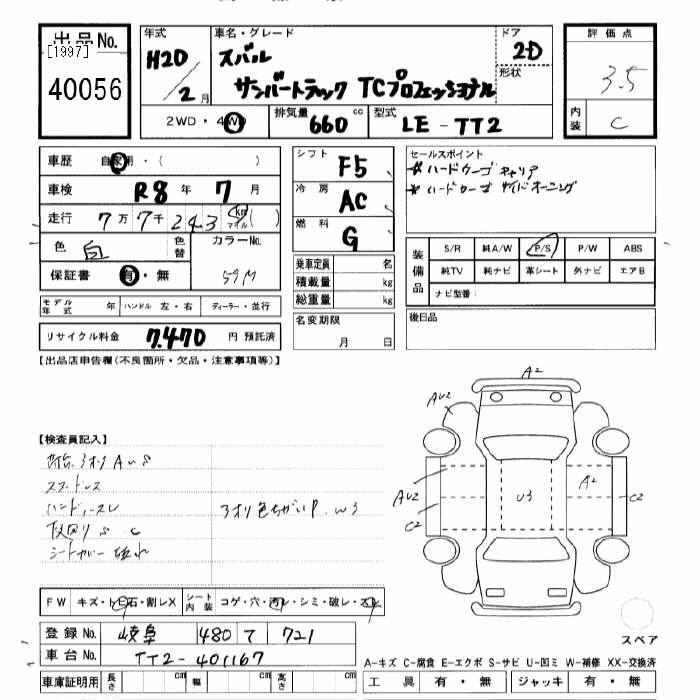 出品No.
[1997]
40056
年式
H20
/2月
車名・グレード
スバル
サンバートラック TCプロフェッショナル
ドア
2D
形状
評価点
3.5
内装
C
2WD・4WD
排気量
660 cc
型式
LE-TT2
車歴 自家用・( )
車検 R8年 7月
走行 7万7千243 km マイル( )
色 白
色替
カラーNo.
保証書 有・無
51M
モデル年式 年 ハンドル 左・右 ディーラー・並行
リサイクル料金 7,470 円 預託済
シフト F5
冷房 AC
燃料 G
乗車定員 名
積載量 kg
総重量 kg
名変期限
月 日
セールスポイント
* ハードカーゴ キャリア
* ハードカーゴ サイドオーニング
装備品
S/R 純A/W P/S P/W ABS
純TV 純ナビ 革シート 外ナビ エアB
ナビ型番:
後日品
【出品店申告欄(不良箇所・欠品・注意事項等)】
【検査員記入】
スタッドレス
ハンドルスレ
下回り S C
シートカバー 破れ
3オリ色ちがいP. W3
A2
AU2
AU2
C2
U3
A2
C2
スペア
FW キズ・トビ石・割レX
シート内装 コゲ・穴・汚レ・シミ・破レ・スレ
登録No. 岐阜 480 て 721
車台No. TT2-401167
車庫証明用 長さ cm 幅 cm 高さ cm
A-キズ C-腐食 E-エクボ S-サビ U-凹ミ W-補修 XX-交換済
工具 有・無 ジャッキ 有・無